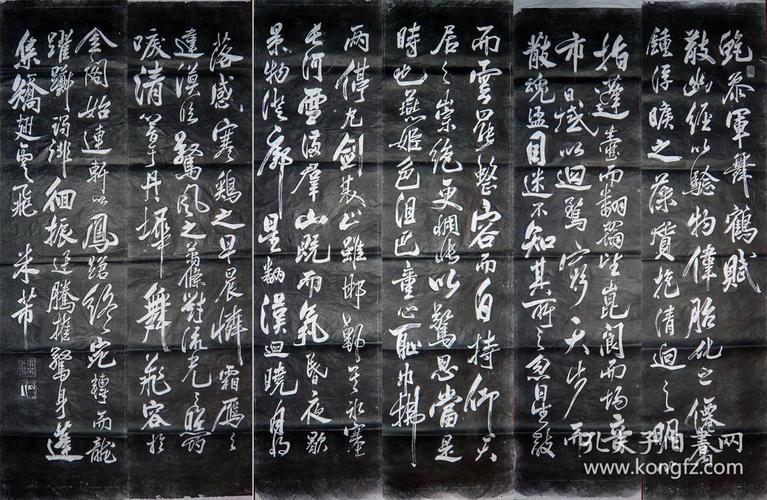 鮑參軍舞鶴賦
散幽經以驗物偉胎化之僊禽
鍾浮曠之藻質抱清迥之明
指蓬壺而翻翰望崑閬而揚音
市日域以迴騖窮天步而
散魂盪目迷不知其所之忽星
而雲罷整容而自持仰天
居之崇絕更惆悵以驚思當是
時也燕姬色沮巴童心恥巾拂
兩停丸劍雙止雖邯鄲冰塞
長河雪滿群山既而氛昏夜歇
景物澄廓星翻漢迴曉月將
落感寒鷄之早晨憐霜鴈之
違漠臨驚風之蕭條對流光之照灼
唳清響於丹墀舞飛容於
金閣始連軒以鳳蹌終宛轉而龍
躍躑躅徘徊振迅騰摧驚身蓬
集矯翅雪飛 米芾
孔夫子旧书网
www.kongfz.com